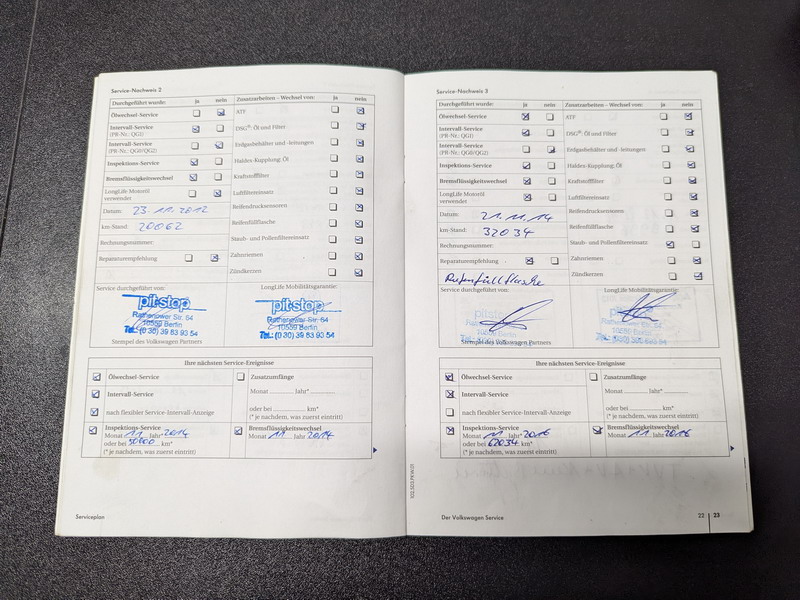 Service-Nachweis 2
Durchgeführt wurde: ja nein
Ölwechsel-Service
Intervall-Service
(PR-Nr.: QG1)
Intervall-Service
(PR-Nr.: QG0/QG2)
Inspektions-Service
Bremsflüssigkeitswechsel
LongLife Motoröl
verwendet
Datum: 23.11.2012
km-Stand: 20062
Rechnungsnummer:
Reparaturempfehlung
Zusatzarbeiten – Wechsel von: ja nein
ATF
DSG®: Öl und Filter
Erdgasbehälter und -leitungen
Haldex-Kupplung: Öl
Kraftstofffilter
Luftfiltereinsatz
Reifendrucksensoren
Reifenfüllflasche
Staub- und Pollenfiltereinsatz
Zahnriemen
Zündkerzen
Service durchgeführt von:
pit-stop
Rathenower Str. 64
10559 Berlin
Tel.: (0 30) 39 83 93 54
Stempel des Volkswagen Partners
LongLife Mobilitätsgarantie:
pit-stop
Rathenower Str. 64
10559 Berlin
Tel.: (0 30) 39 83 93 54
Ihre nächsten Service-Ereignisse
Ölwechsel-Service
Intervall-Service
nach flexibler Service-Intervall-Anzeige
Inspektions-Service
Monat 11 Jahr* 2014
oder bei 50000 km*
(* je nachdem, was zuerst eintritt)
Zusatzumfänge
Monat Jahr*
oder bei km*
(* je nachdem, was zuerst eintritt)
Bremsflüssigkeitswechsel
Monat 11 Jahr 2014
Serviceplan
Service-Nachweis 3
Durchgeführt wurde: ja nein
Ölwechsel-Service
Intervall-Service
(PR-Nr.: QG1)
Intervall-Service
(PR-Nr.: QG0/QG2)
Inspektions-Service
Bremsflüssigkeitswechsel
LongLife Motoröl
verwendet
Datum: 21.11.14
km-Stand: 32034
Rechnungsnummer:
Reparaturempfehlung
Reifenfüllflasche
Zusatzarbeiten – Wechsel von: ja nein
ATF
DSG®: Öl und Filter
Erdgasbehälter und -leitungen
Haldex-Kupplung: Öl
Kraftstofffilter
Luftfiltereinsatz
Reifendrucksensoren
Reifenfüllflasche
Staub- und Pollenfiltereinsatz
Zahnriemen
Zündkerzen
Service durchgeführt von:
pit-stop
Stempel des Volkswagen Partners
LongLife Mobilitätsgarantie:
Ihre nächsten Service-Ereignisse
Ölwechsel-Service
Intervall-Service
nach flexibler Service-Intervall-Anzeige
Inspektions-Service
Monat 11 Jahr* 2016
oder bei 62034 km*
(* je nachdem, was zuerst eintritt)
Zusatzumfänge
Monat Jahr*
oder bei km*
(* je nachdem, was zuerst eintritt)
Bremsflüssigkeitswechsel
Monat 11 Jahr 2016
Der Volkswagen Service
22 23